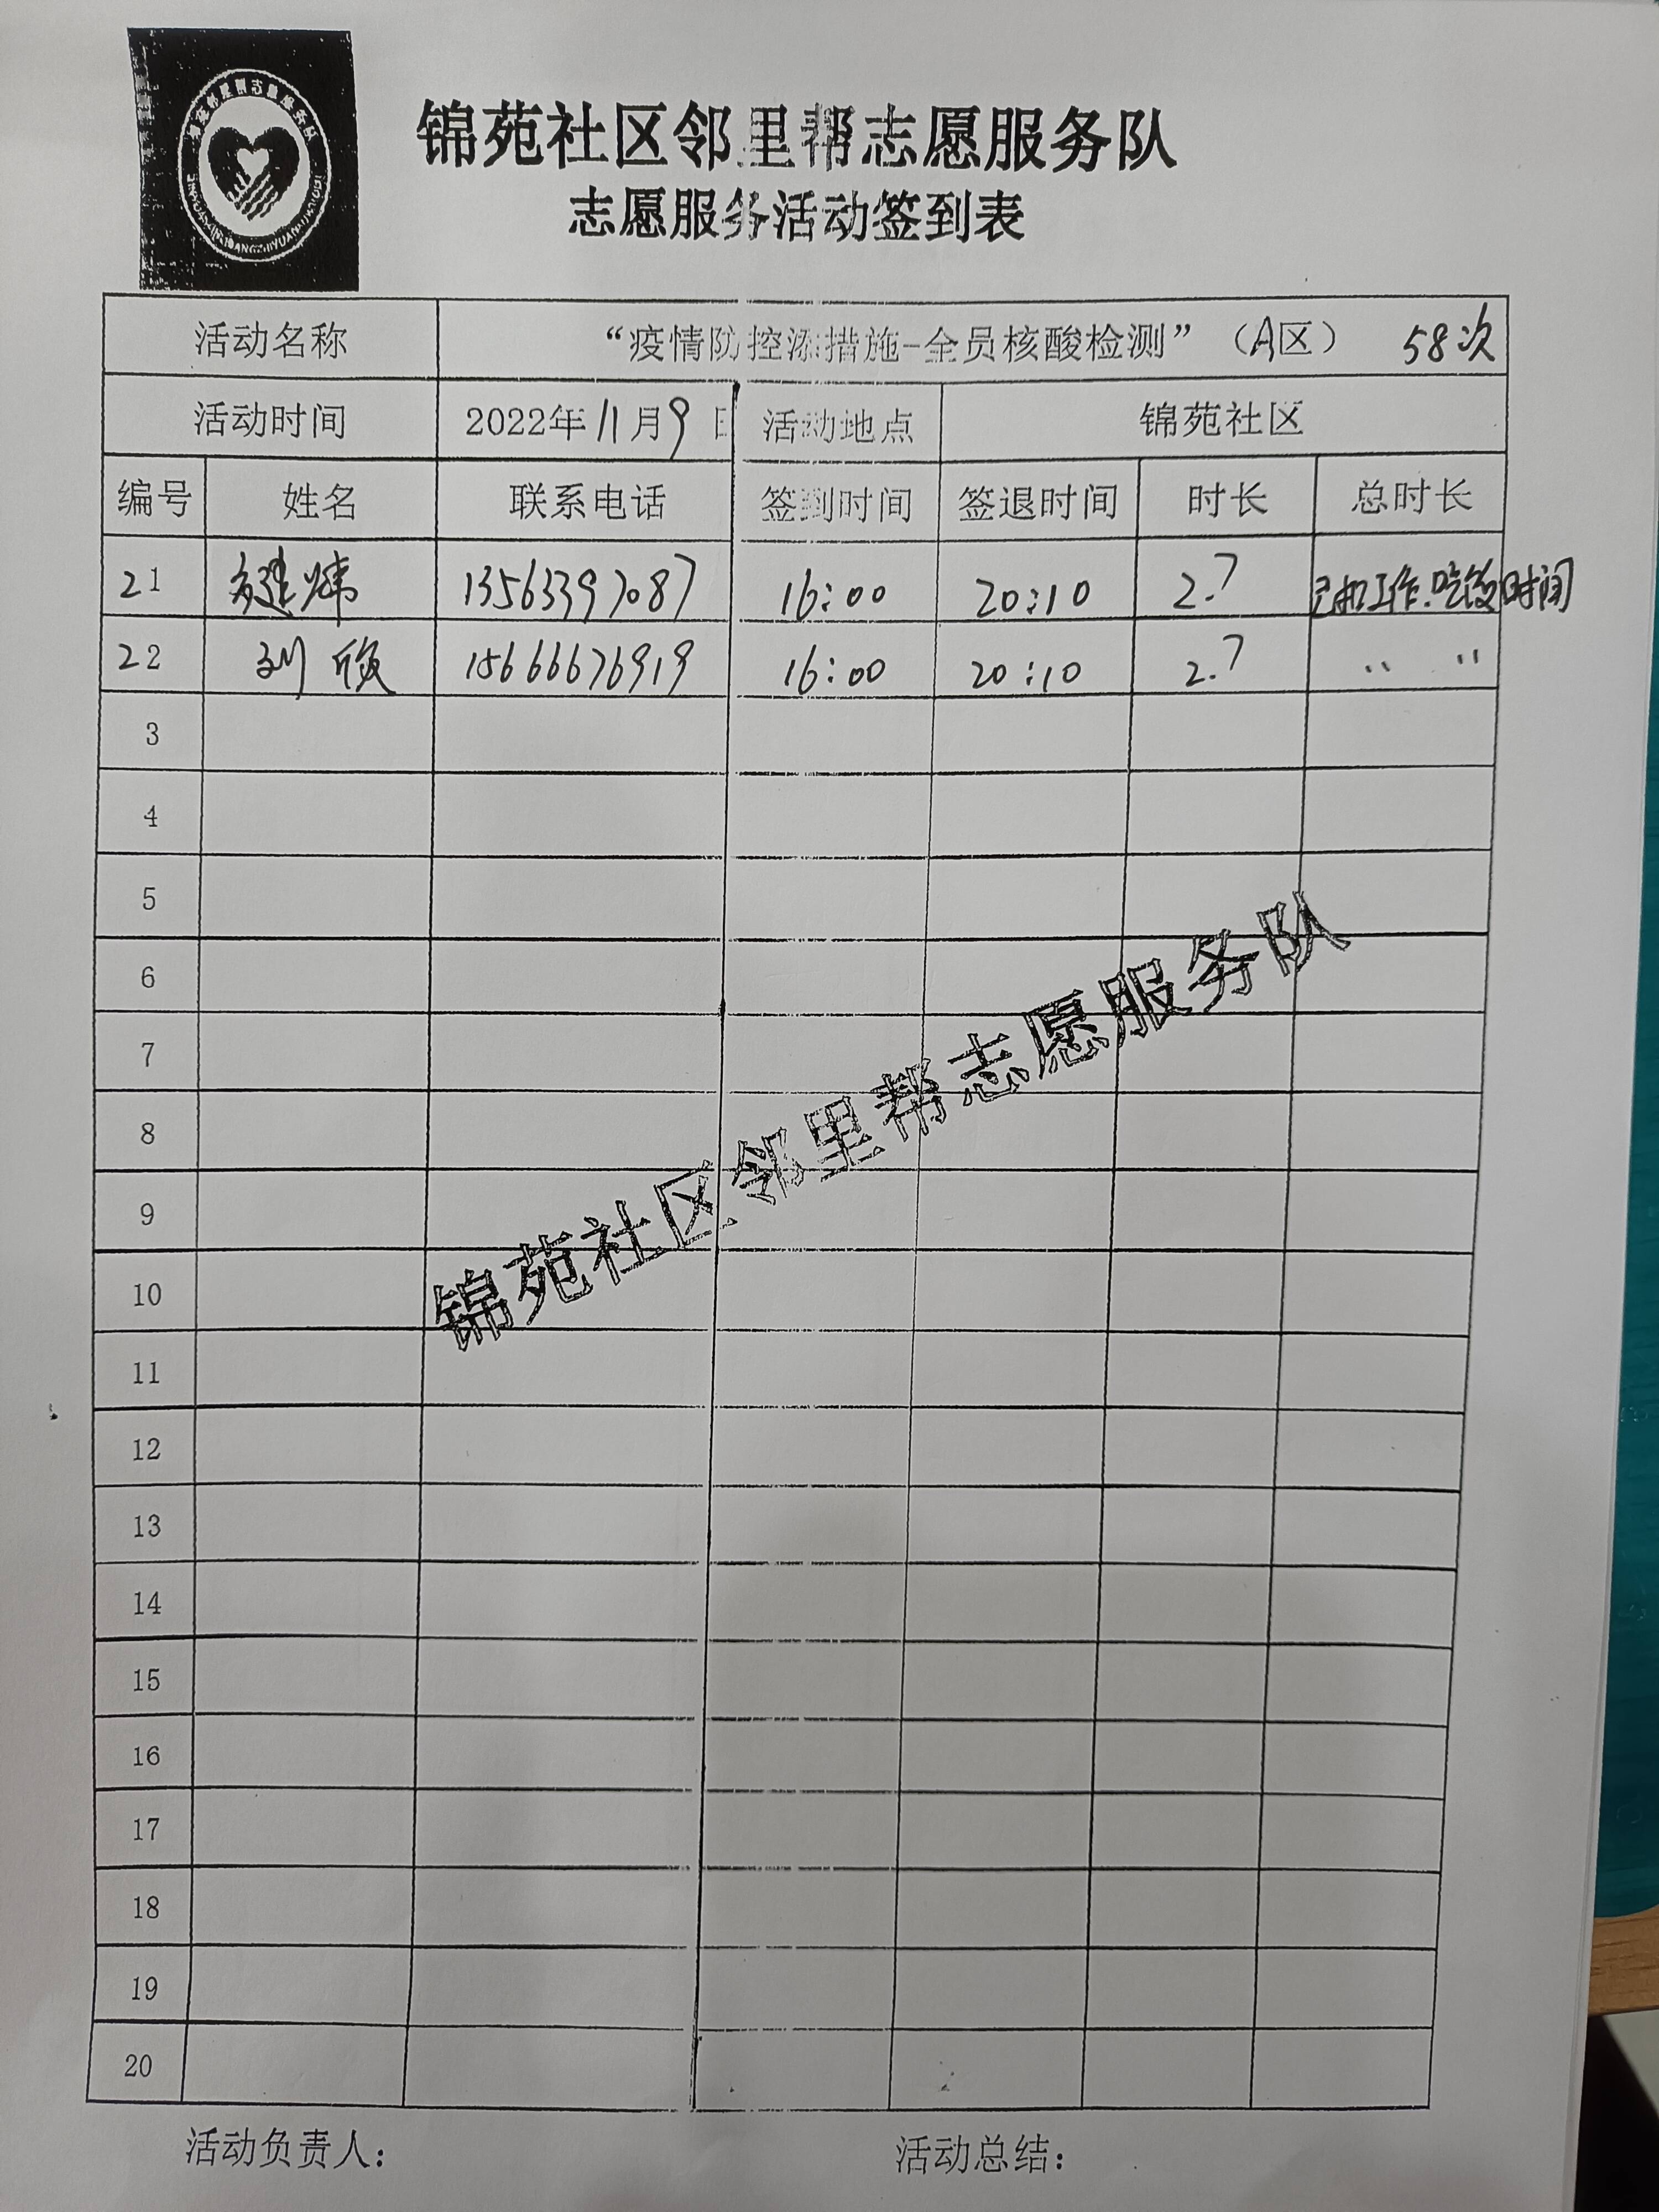 锦苑社区邻里帮志愿服务队
志愿服务活动签到表
活动名称 “疫情防控添措施-全员核酸检测”（A区） 58次
活动时间 2022年11月9日 活动地点 锦苑社区
编号 姓名 联系电话 签到时间 签退时间 时长 总时长
21 13563397087 16:00 20:10 2.7 已扣工作.吃饭时间
22 刘欣 15666676919 16:00 20:10 2.7 〃 〃
3
4
5
6
7
8
9
10
11
12
13
14
15
16
17
18
19
20
锦苑社区邻里帮志愿服务队
活动负责人: 活动总结: